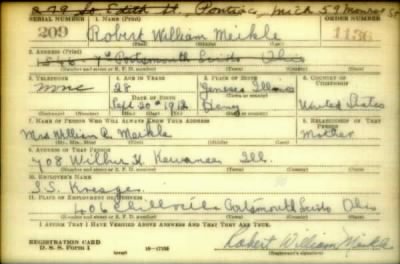 879 So Edith St, Pontiac, Mich 59 Monroe St
SERIAL NUMBER 1. NAME (Print) ORDER NUMBER
209 Robert William Meikle 1136
(First) (Middle) (Last)
2. ADDRESS (Print)
1846-7th Portsmouth Scioto Ohio
(Number and street or R. F. D. number) (Town) (County) (State)
3. TELEPHONE 4. AGE IN YEARS 5. PLACE OF BIRTH 6. COUNTRY OF CITIZENSHIP
none 28 Geneseo Illinois
DATE OF BIRTH
Sept 20th 1912 Henry United States
7. NAME OF PERSON WHO WILL ALWAYS KNOW YOUR ADDRESS 8. RELATIONSHIP OF THAT PERSON
Mrs William R Meikle Mother
9. ADDRESS OF THAT PERSON
708 Wilbur St Kewanee Ill.
(Number and street or R. F. D. number) (Town) (County) (State)
10. EMPLOYER'S NAME
S.S. Kresge
11. PLACE OF EMPLOYMENT OR BUSINESS
406 Chillicothe Portsmouth Scioto Ohio
(Number and street or R. F. D. number) (Town) (County) (State)
I AFFIRM THAT I HAVE VERIFIED ABOVE ANSWERS AND THAT THEY ARE TRUE.
REGISTRATION CARD
D. S. S. Form 1 (over) 16-17105 Robert William Meikle
(Registrant's signature)